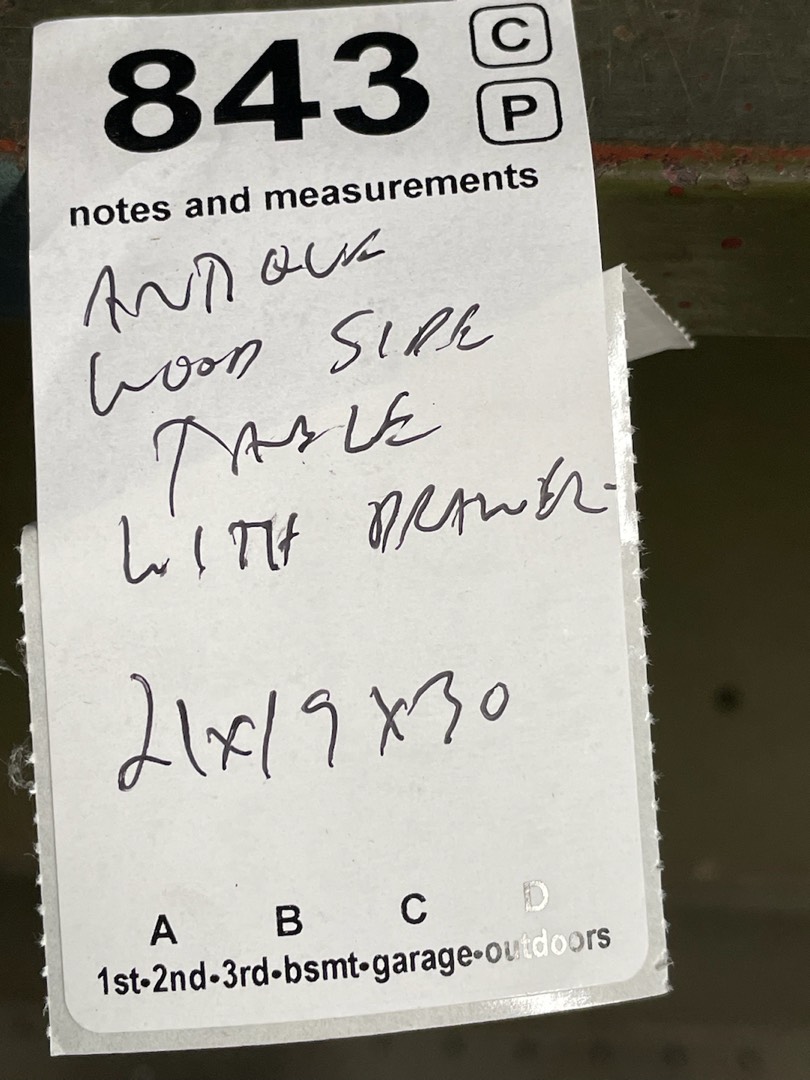 843
C
P
notes and measurements
ANTIQUE
WOOD SIDE
TABLE
WITH DRAWER
21x19x30
A B C D
1st•2nd•3rd•bsmt•garage•outdoors